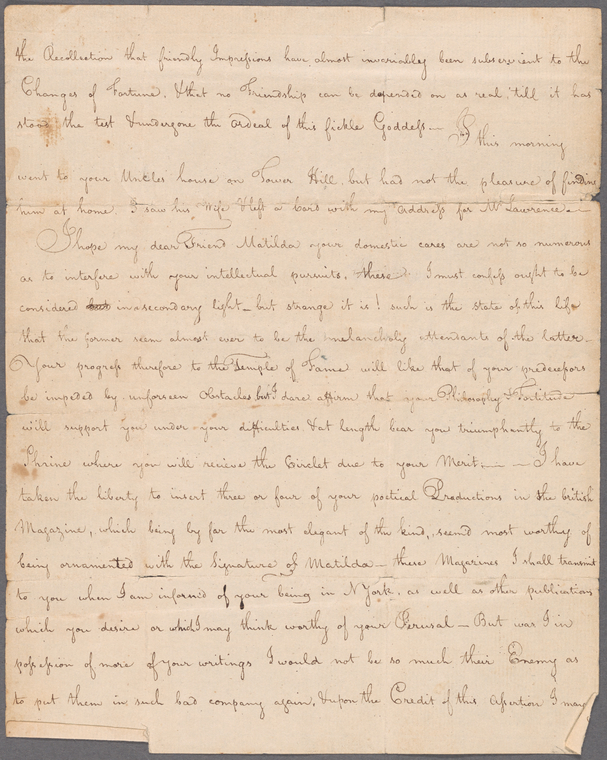 the Recollection that friendly Impressions have almost invariably been subservient to the
Changes of Fortune. & that no Friendship can be depended on as real 'till it has
stood the test & undergone the ordeal of this fickle Goddess—
I this morning
went to your Uncles house on Tower Hill. but had not the pleasure of finding
him at home. I saw his Wife & left a Card with my Address for Mr Lawrence—
I hope my dear Friend Matilda your domestic cares are not so numerous
as to interfere with your intellectual pursuits, these I must confess ought to be
considered but in a secondary light— but strange it is! such is the state of this life
that the former seem almost ever to be the melancholy attendants of the latter—
Your progress therefore to the Temple of Fame will like that of your predecessors
be impeded by unforseen Obstacles, but I dare affirm that your Philosophy & Fortitude
will support you under your difficulties & at length bear you triumphantly to the
Shrine where you will recieve the Circlet due to your Merit.— — I have
taken the liberty to insert three or four of your poetical Productions in the british
Magazine, which being by far the most elegant of the kind, seem'd most worthy of
being ornamented with the Signature of Matilda— these Magazines I shall transmit
to you when I am inform'd of your being in N York. as well as other publications
which you desire or which I may think worthy of your Perusal— But was I in
possession of more of your writings I would not be so much their Enemy as
to put them in such bad company again. & upon the Credit of this Assertion I may